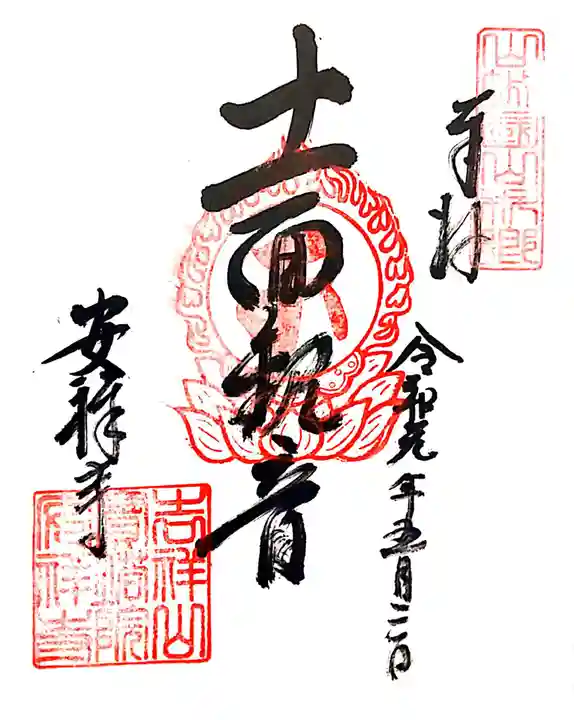 奉拝
令和元年五月二日
十一面観音
安祥寺
吉祥山
寶塔院
安祥寺